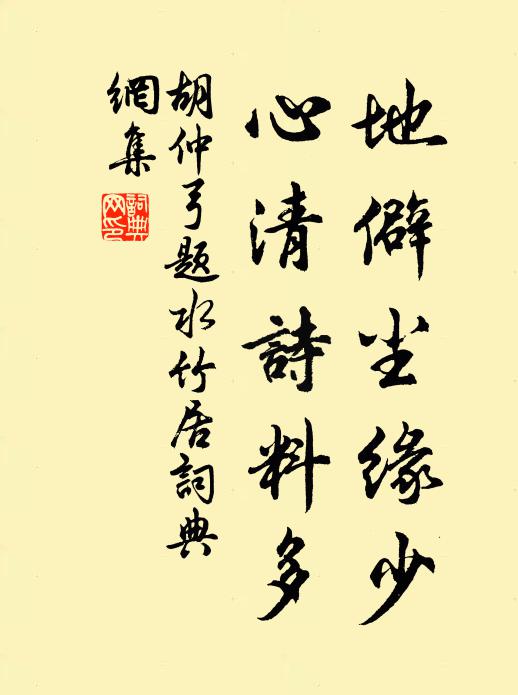 地僻尘缘少
心清詩料多
胡仲弓题水竹居詞典
網集
詞典
网印